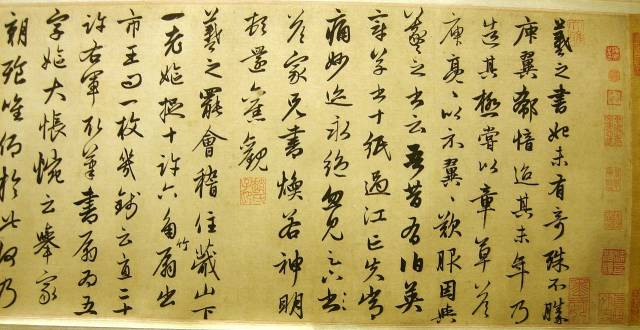 羲之書初未有奇殊不勝
庾翼郗愔迨其末年乃
造其極嘗以章草答
庾亮〻以示翼〻歎服因與
羲之書云吾昔有伯英
章草書十紙過江亡失常
痛妙迹永絕忽見足下書
答家兄書煥若神明
頓還舊觀
羲之罷會稽住蕺山下
一老嫗捉十許六角竹扇出
市王問一枚幾錢云直二十
許右軍取筆書扇為五
字嫗大悵惋云舉家
朝飱唯仰於此何乃